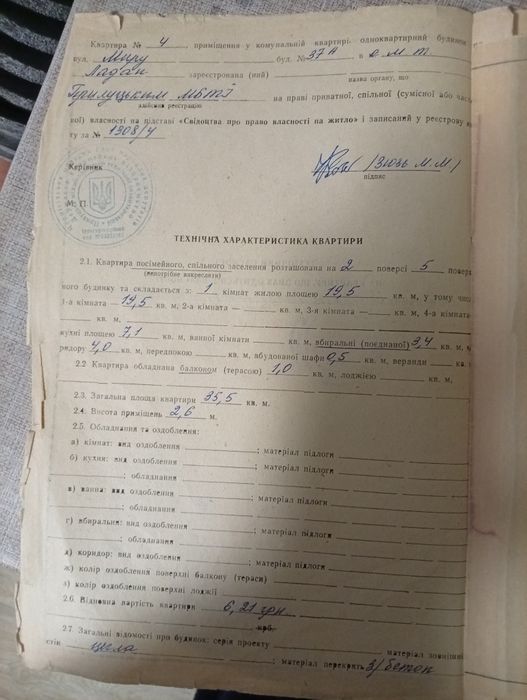 Квартира № 4 , приміщення у комунальній квартирі, одноквартирний будинок
вул. Миру буд. № 37А в с м т
Ладан зареєстрована (ний)
назва органу, що
Прилуцьким МБТІ на праві приватної, спільної (сумісної або часто
здійснив реєстрацію
вої) власності на підставі «Свідоцтва про право власності на житло» і записаний у реєстрову
гу за № 1308/4
Керівник /Зюзь М.М/
підпис
М. П.
ТЕХНІЧНА ХАРАКТЕРИСТИКА КВАРТИРИ
2.1. Квартира посімейного, спільного заселення розташована на 2 поверсі 5 повер
(непотрібне закреслити)
ного будинку та складається з: 1 кімнат жилою площею 19,5 кв. м, у тому числі
1-а кімната — 19,5 кв. м, 2-а кімната — кв. м, 3-я кімната — кв. м, 4-а кімната
кв. м,
кухні площею 7,1 кв. м, ванної кімнати — кв. м, вбиральні (поєднаної) 3,4 кв. м,
ридору 4,0 кв. м, передпокою кв. м, вбудованої шафи 0,5 кв. м, веранди кв.
2.2 Квартира обладнана балконом (терасою) 1,0 кв. м, лоджією кв. м,
2.3. Загальна площа квартири 35,5 кв. м.
2.4. Висота приміщень 2,6 м.
2.5. Обладнання та оздоблення:
а) кімнат: вид оздоблення ; матеріал підлоги
б) кухня: вид оздоблення ; матеріал підлоги
; обладнання
в) ванна: вид оздоблення ; матеріал підлоги
; обладнання
г) вбиральня: вид оздоблення ; матеріал підлоги
; обладнання
д) коридор: вид оздоблення ; матеріал підлоги
ж) колір оздоблення поверхні балкону (тераси)
з) колір оздоблення поверхні лоджії
2.6. Відновна вартість квартири 6,21 грн
крб.
2.7. Загальні відомості про будинок: серія проекту матеріал зовнішніх
стін цегла ; матеріал перекрить З/бетон